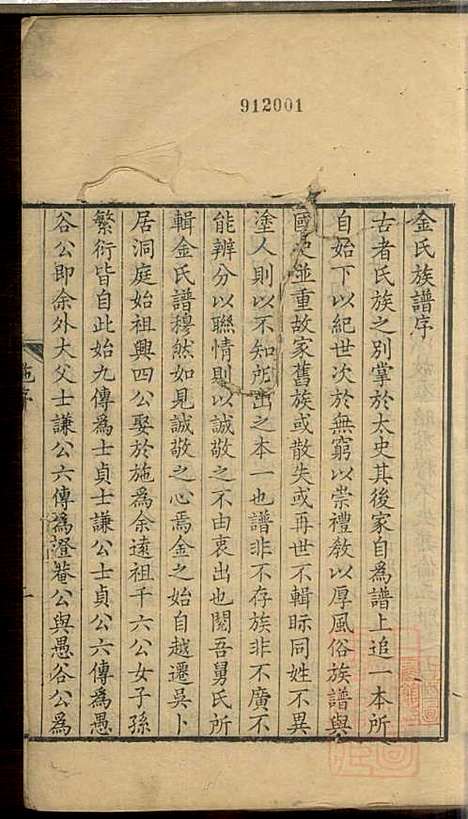 912001
金氏族譜序
古者氏族之別掌於太史其後家自為譜上追一本所
自始下以紀世次於無窮以崇禮敎以厚風俗族譜與
國史並重故家舊族或散失或再世不輯眎同姓不異
塗人則以不知所出之本一也譜非不存族非不廣不
能辨分以聯情則以誠敬之不由衷出也閱吾舅氏所
輯金氏譜穆然如見誠敬之心焉金之始自越遷吳卜
居洞庭始祖興四公娶於施為余遠祖千六公女子孫
繁衍皆自此始九傳為士貞士謙公士貞公六傳為愚
谷公即余外大父士謙公六傳為澄菴公與愚谷公為
施序